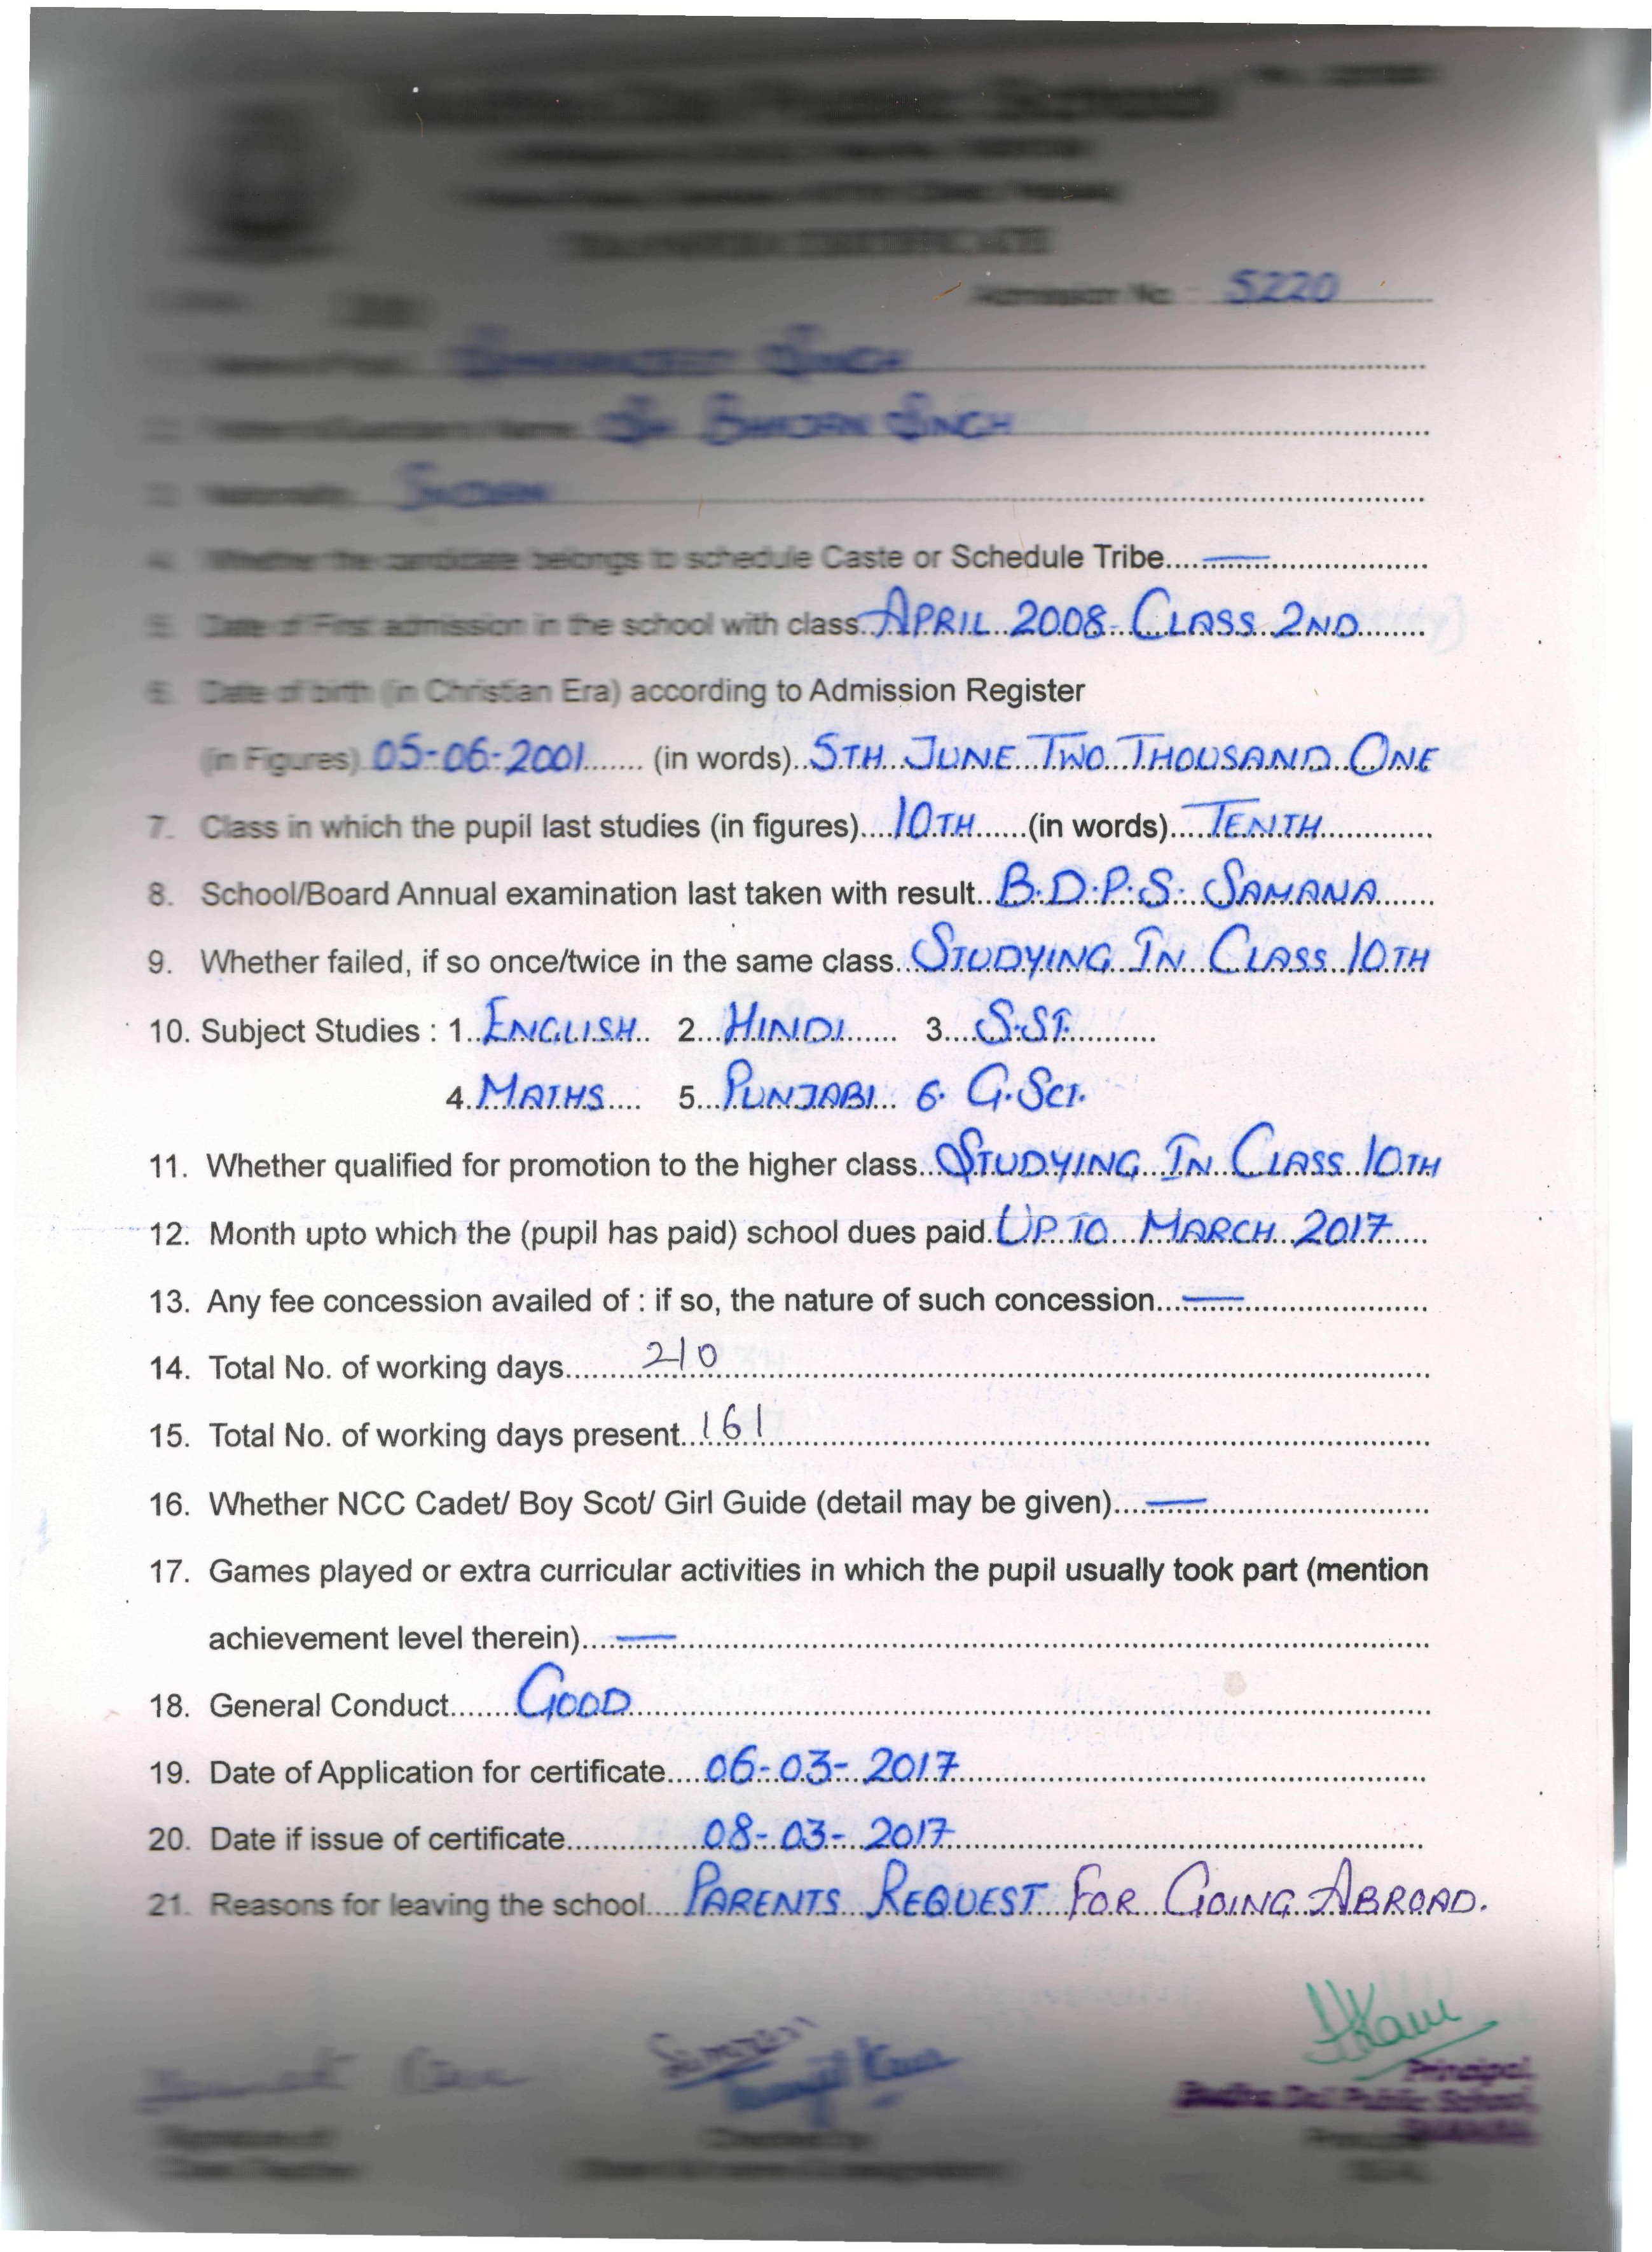 Public School
TRANSFER CERTIFICATE
Admission No. 5220
SINGH
Sh BHAJAN SINGH
INDIAN
4. Whether the candidate belongs to schedule Caste or Schedule Tribe....—
5. Date of First admission in the school with class..APRIL 2008-CLASS 2ND
6. Date of birth (in Christian Era) according to Admission Register
(in Figures) 05-06-2001....... (in words)..5TH JUNE TWO THOUSAND ONE
7. Class in which the pupil last studies (in figures)....10TH......(in words)....TENTH
8. School/Board Annual examination last taken with result...B.D.P.S. SAMANA
9. Whether failed, if so once/twice in the same class...STUDYING IN CLASS 10TH
10. Subject Studies : 1..ENGLISH.. 2...HINDI...... 3....S.ST...........
4..MATHS.... 5...PUNJABI... 6. G.SCI.
11. Whether qualified for promotion to the higher class...STUDYING IN CLASS 10TH
12. Month upto which the (pupil has paid) school dues paid..UPTO MARCH 2017
13. Any fee concession availed of : if so, the nature of such concession....—
14. Total No. of working days..........210
15. Total No. of working days present...161
16. Whether NCC Cadet/ Boy Scot/ Girl Guide (detail may be given)....—
17. Games played or extra curricular activities in which the pupil usually took part (mention
achievement level therein)....—
18. General Conduct.......GOOD
19. Date of Application for certificate....06-03-2017
20. Date if issue of certificate..............08-03-2017
21. Reasons for leaving the school....PARENTS REQUEST FOR GOING ABROAD.
Kaur
Principal,
Budha Dal Public School,
SAMANA.